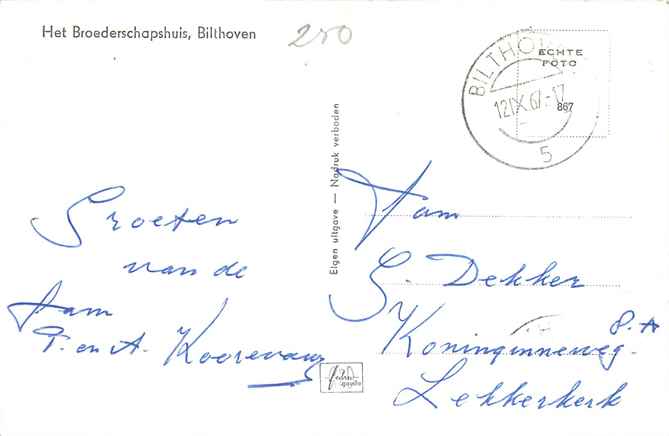 Het Broederschapshuis, Bilthoven
250
BILTHO
12 IX 67.-17
5
ECHTE
FOTO
867
Eigen uitgave — Nadruk verboden
Groeten
van de
fam
P. en A. Koorevaar
Fam
G. Dekker
Koninginneweg. 8.A
Lekkerkerk